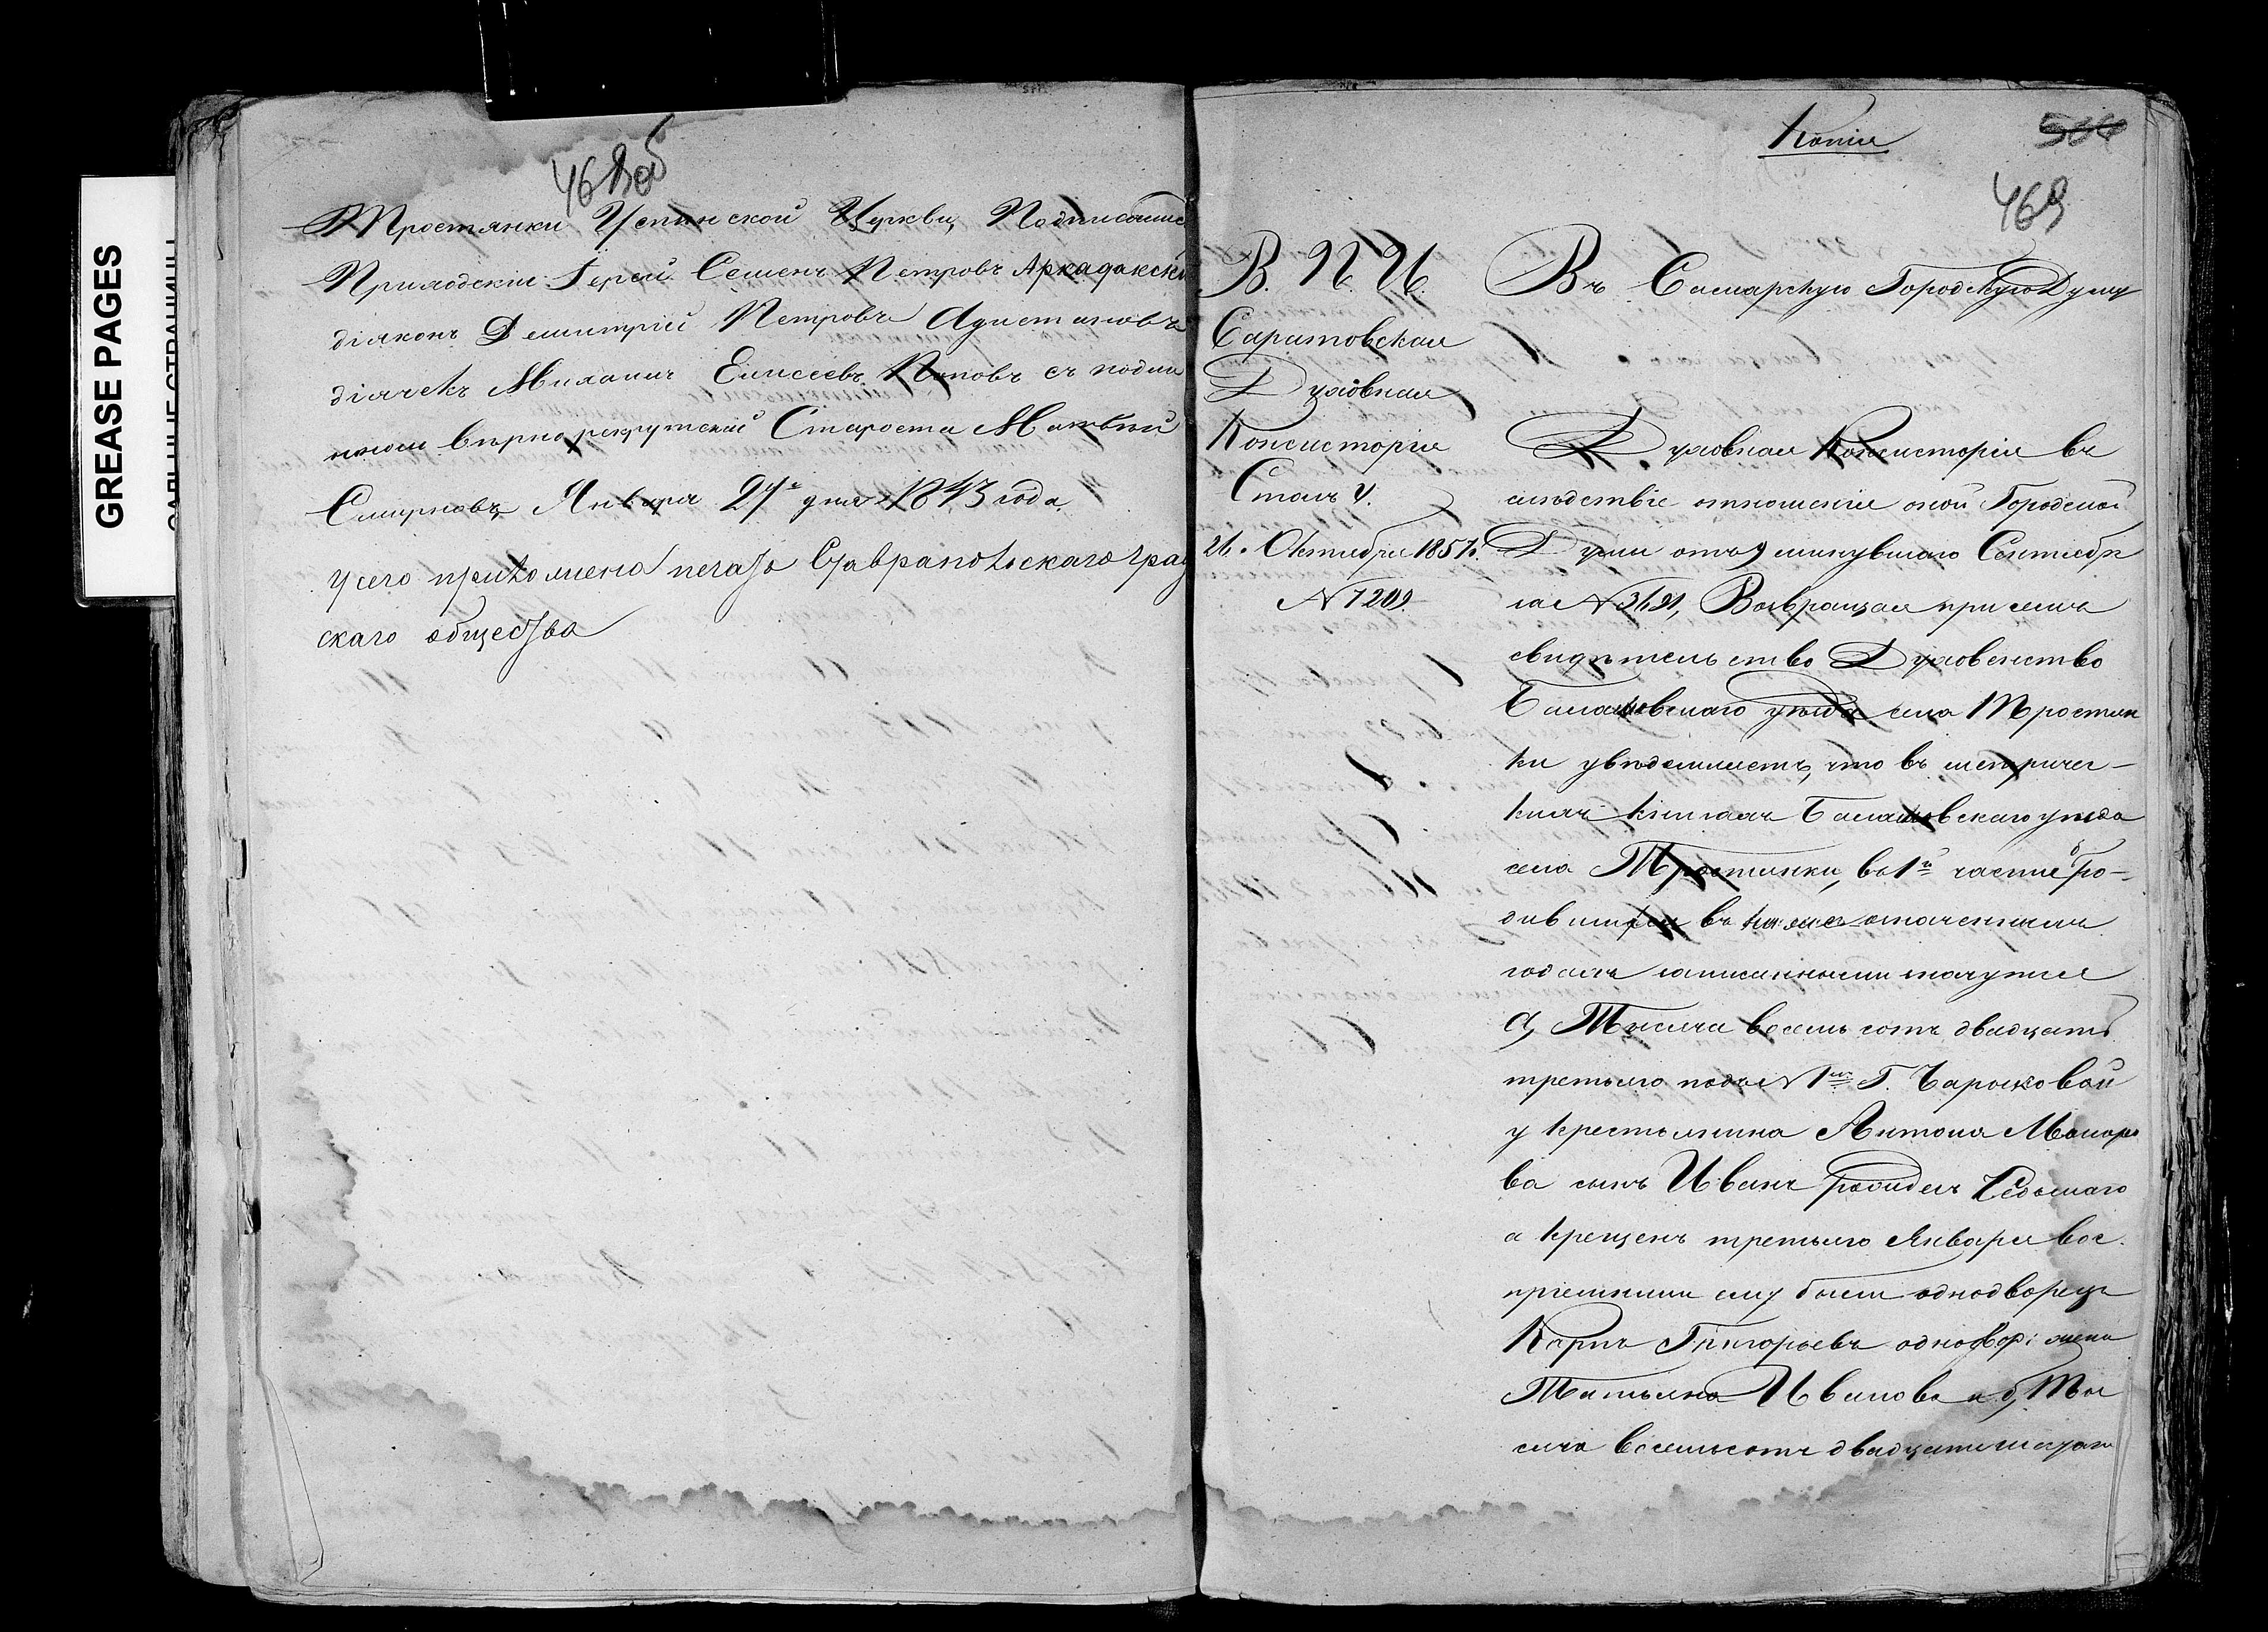 468 об
Тростянки Успенской Церкви, Подписалис
Приходскій Іерей Семенъ Петровъ Аркадакскі
діяконъ Демитрій Петровъ
діячекъ Михаилъ Елисеевъ Поповъ съ подли
нном вѣрно рекрутскій Староста Матвѣй
Смирновъ Января 27 дня 1843 года
у сего приложена печать Ставрапольскаго град
скаго общества
Копія
469
В. П. И.
Саратовская
Духовная
Консисторія
Столъ 4.
21. Октября 1851.
N 7209.
Въ Самарскую Городскую Думу
Духовная Консисторія въ
слѣдствіе отношенія оной Городской
Думы отъ 9 минувшаго Сентября
за N 3691, Возвращая при семъ
свидѣтельство Духовенства
Балашовскаго уѣзда села Тростян
ки увѣдомляетъ, что въ метричес-
кихъ книгахъ Балашовскаго уѣзда
села Тростянки, въ 1й части о Ро-
дившихся въ означенныхъ
годахъ записанными значутся
а, Тысяча восемь сотъ двадцать
третьяго подъ N 1м Г.
у крестьянина Антона Макаро
ва сынъ Иванъ рожденъ Седьмаго
а крещенъ третьяго Января вос
пріемники ему были однодворецъ
Карпъ Григорьевъ однодвор: жена
Татьяна Иванова и б, Ты
сяча восемьсотъ двадцать